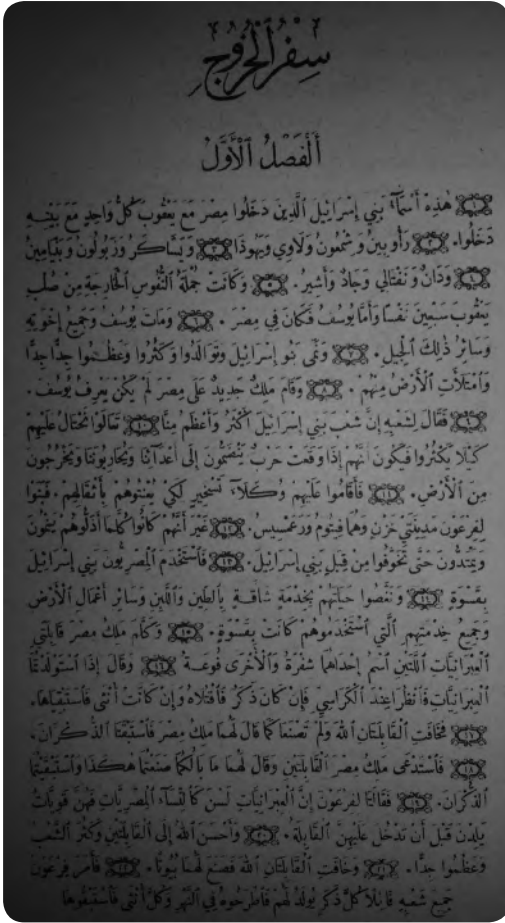 سِفْرُ ٱلْخُرُوجِ
أَلْفَصْلُ ٱلْأَوَّلُ
١ هٰذِهِ أَسْمَآءُ بَنِي إِسْرَائِيلَ ٱلَّذِينَ دَخَلُوا مِصْرَ مَعَ يَعْقُوبَ كُلُّ وَاحِدٍ مَعَ بَيْتِهِ
دَخَلُوا. ٢ رَأُوبِينُ وَشِمْعُونُ وَلَاوِي وَيَهُوذَا ٣ وَيَسَّاكَرُ وَزَبُولُونُ وَبَنْيَامِينُ
٤ وَدَانُ وَنَفْتَالِي وَجَادُ وَأَشِيرُ. ٥ وَكَانَتْ جُمْلَةُ ٱلنُّفُوسِ ٱلْخَارِجَةِ مِنْ صُلْبِ
يَعْقُوبَ سَبْعِينَ نَفْسًا وَأَمَّا يُوسُفُ فَكَانَ فِي مِصْرَ. ٦ وَمَاتَ يُوسُفُ وَجَمِيعُ إِخْوَتِهِ
وَسَائِرُ ذٰلِكَ ٱلْجِيلِ. ٧ وَنَمَى بَنُو إِسْرَائِيلَ وَتَوَالَدُوا وَكَثُرُوا وَعَظُمُوا جِدًّا جِدًّا
وَٱمْتَلَأَتِ ٱلْأَرْضُ مِنْهُمْ. ٨ وَقَامَ مَلِكٌ جَدِيدٌ عَلَى مِصْرَ لَمْ يَكُنْ يَعْرِفُ يُوسُفَ.
٩ فَقَالَ لِشَعْبِهِ إِنَّ شَعْبَ بَنِي إِسْرَائِيلَ أَكْثَرُ وَأَعْظَمُ مِنَّا ١٠ تَعَالَوْا نَحْتَالُ عَلَيْهِمْ
كَيْلَا يَكْثُرُوا فَيَكُونَ أَنَّهُمْ إِذَا وَقَعَتْ حَرْبٌ يَنْضَمُّونَ إِلَى أَعْدَآئِنَا وَيُحَارِبُونَنَا وَيَخْرُجُونَ
مِنَ ٱلْأَرْضِ. ١١ فَأَقَامُوا عَلَيْهِمْ وُكَلَآءَ تَسْخِيرٍ لِكَيْ يُعَنِّتُوهُمْ بِأَثْقَالِهِمْ. فَبَنَوْا
لِفِرْعَوْنَ مَدِينَتَيْ خَزْنٍ وَهُمَا فِيتُومُ وَرَعْمَسِيسُ. ١٢ غَيْرَ أَنَّهُمْ كَانُوا كُلَّمَا أَذَلُّوهُمْ يَنْمُونَ
وَيَمْتَدُّونَ حَتَّى تَخَوَّفُوا مِنْ قِبَلِ بَنِي إِسْرَائِيلَ. ١٣ فَٱسْتَخْدَمَ ٱلْمِصْرِيُّونَ بَنِي إِسْرَائِيلَ
بِقَسْوَةٍ ١٤ وَنَغَّصُوا حَيَاتَهُمْ بِخِدْمَةٍ شَاقَّةٍ بِٱلطِّينِ وَٱللَّبِنِ وَسَائِرِ أَعْمَالِ ٱلْأَرْضِ
وَجَمِيعُ خِدْمَتِهِمِ ٱلَّتِي ٱسْتَخْدَمُوهُمْ كَانَتْ بِقَسْوَةٍ. ١٥ وَكَلَّمَ مَلِكُ مِصْرَ قَابِلَتَيِ
ٱلْعِبْرَانِيَّاتِ ٱللَّتَيْنِ ٱسْمُ إِحْدَاهُمَا شِفْرَةُ وَٱلْأُخْرَى فُوعَةُ ١٦ وَقَالَ إِذَا ٱسْتَوْلَدْتُمَا
ٱلْعِبْرَانِيَّاتِ فَٱنْظُرَا عِنْدَ ٱلْكَرَاسِيِّ فَإِنْ كَانَ ذَكَرٌ فَٱقْتُلَاهُ وَإِنْ كَانَتْ أُنْثَى فَٱسْتَبْقِيَاهَا.
١٧ فَخَافَتِ ٱلْقَابِلَتَانِ ٱللهَ وَلَمْ تَصْنَعَا كَمَا قَالَ لَهُمَا مَلِكُ مِصْرَ فَٱسْتَبْقَتَا ٱلذُّكْرَانَ.
١٨ فَٱسْتَدْعَى مَلِكُ مِصْرَ ٱلْقَابِلَتَيْنِ وَقَالَ لَهُمَا مَا بَالُكُمَا صَنَعْتُمَا هٰكَذَا وَٱسْتَبْقَيْتُمَا
ٱلذُّكْرَانَ. ١٩ فَقَالَتَا لِفِرْعَوْنَ إِنَّ ٱلْعِبْرَانِيَّاتِ لَسْنَ كَٱلنِّسَآءِ ٱلْمِصْرِيَّاتِ فَهُنَّ قَوِيَّاتٌ
يَلِدْنَ قَبْلَ أَنْ تَدْخُلَ عَلَيْهِنَّ ٱلْقَابِلَةُ. ٢٠ وَأَحْسَنَ ٱللهُ إِلَى ٱلْقَابِلَتَيْنِ وَكَثُرَ ٱلشَّعْبُ
وَعَظُمُوا جِدًّا. ٢١ وَخَافَتِ ٱلْقَابِلَتَانِ ٱللهَ فَصَنَعَ لَهُمَا بُيُوتًا. ٢٢ فَأَمَرَ فِرْعَوْنُ
جَمِيعَ شَعْبِهِ قَائِلًا كُلُّ ذَكَرٍ يُولَدُ لَهُمْ فَٱطْرَحُوهُ فِي ٱلنَّهْرِ وَكُلُّ أُنْثَى فَٱسْتَبْقُوهَا